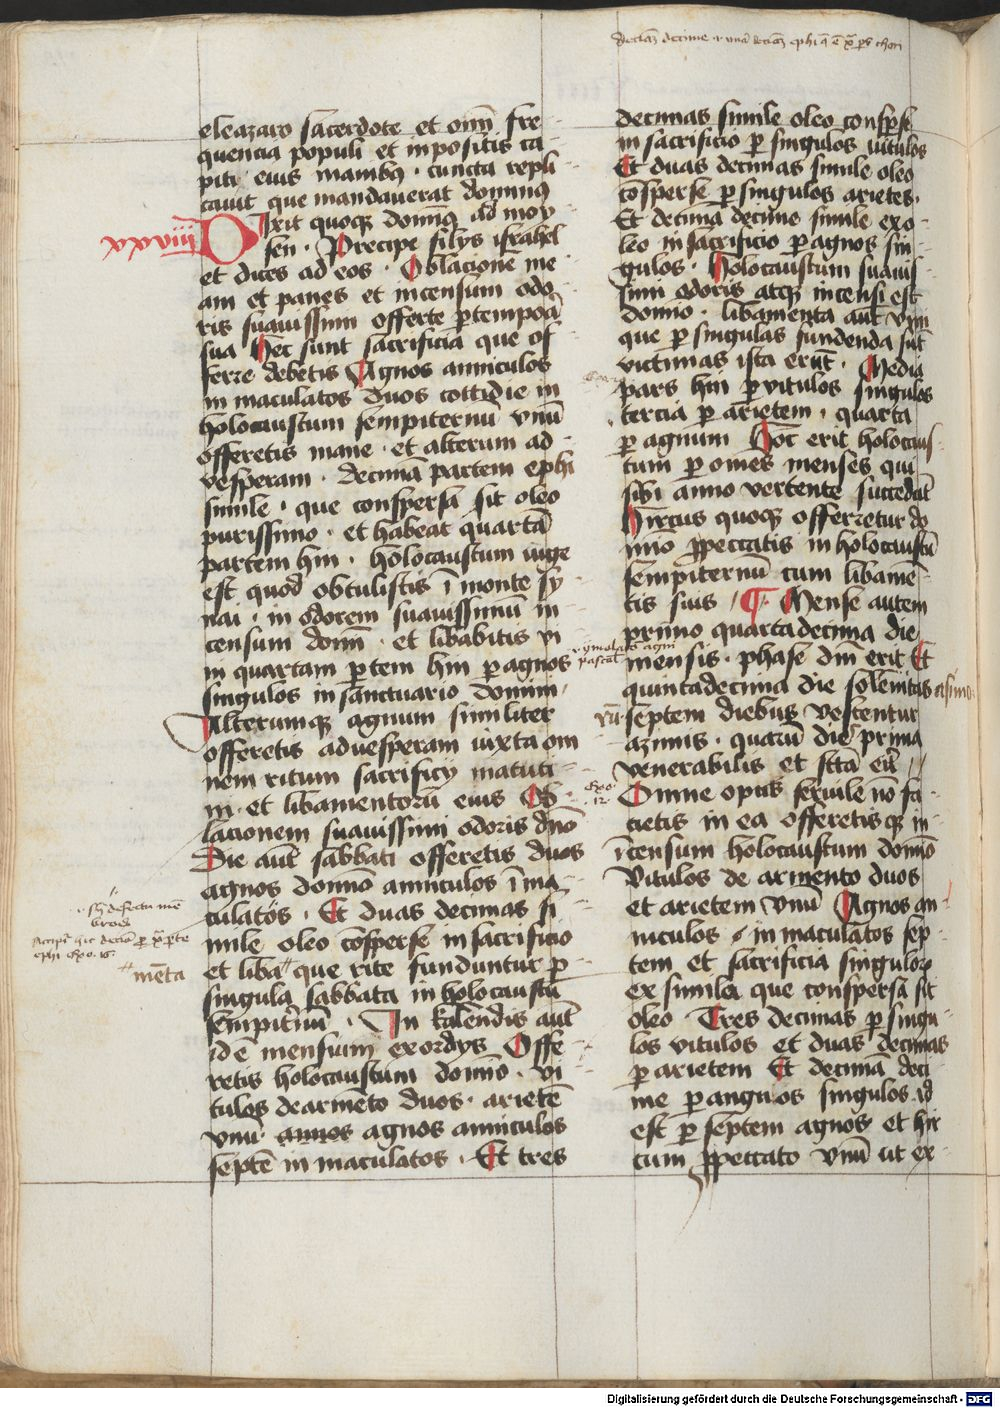 eleazaro sacerdote et omni fre
quencia populi et inpositis ca
piti eius manibus · cuncta repli
cavit que mandaverat dominus
xxviii Dixit quoque dominus ad moy
sen · Precipe filiis israhel
et dices ad eos · Oblacione me
am et panes et incensum odo
ris suavissimi offerte per tempora
sua Hec sunt sacrificia que of
ferre debetis Agnos anniculos
in maculatos duos cottidie in
holocaustum sempiternum unum
offeretis mane · et alterum ad
vesperam · decimam partem ephi
simile · que conspersa sit oleo
purissimo · et habeat quartam
partem hin · holocaustum iuge
est quod obtulistis in monte sy
nai · in odorem suavissimum in
censum domini · et libabitis vi
ni quartam partem hin per agnos
singulos in sanctuario domini /
Alterumque agnum similiter
offeretis ad vesperam iuxta om
nem ritum sacrificii matuti
ni · et libamentorum eius Ob
lacionem suavissimi odoris domino
Die autem sabbati offeretis duos
agnos domino anniculos in ma
culatos · Et duas decimas si
mile oleo consperse in sacrificio
et liba que rite funduntur per
menta
singula sabbata in holocaustum
sempiternum · In kalendis autem
id est mensium exordiis Offe
retis holocaustum domino · vi
tulos de armento duos · arietem
unum annos agnos anniculos
septem in maculatos · Et tres
decimas simile oleo consperse
in sacrificio per singulos vitulos
Et duas decimas simile oleo
consperse per singulos arietes ·
Et decimam decime simile ex o
leo in sacrificio per agnos sin
gulos · Holocaustum suavis
simi odoris atque incensi est
domino · libamenta autem vini
que per singulas fundenda sunt
victimas ista erunt · Media
pars hin per vitulos singulos
tercia per arietem · quarta
per agnum Hoc erit holocaus
tum per omnes menses qui
sibi anno vertente succedunt
Hircus quoque offerretur do
mino pro peccatis in holocaustum
sempiternum cum libamen
tis suis / ¶ Mense autem
primo quartadecima die
mensis · phase domini erit Et
quintadecima die solemnitas
septem diebus vescentur
azimis · quarum die prima
venerabilis et sancta erit //
Omne opus servile non fa
cietis in ea offeretisque in
incensum holocaustum domino
Vitulos de armento duos
et arietem unum Agnos an
niculos in maculatos sep
tem et sacrificia singulorum
ex simila que conspersa sit
oleo Tres decimas per singu
los vitulos et duas decimas
per arietem Et decimam deci
me per angnos singulos id
est per septem agnos et hir
cum pro peccato unum ut ex
Digitalisierung gefördert durch die Deutsche Forschungsgemeinschaft - DFG